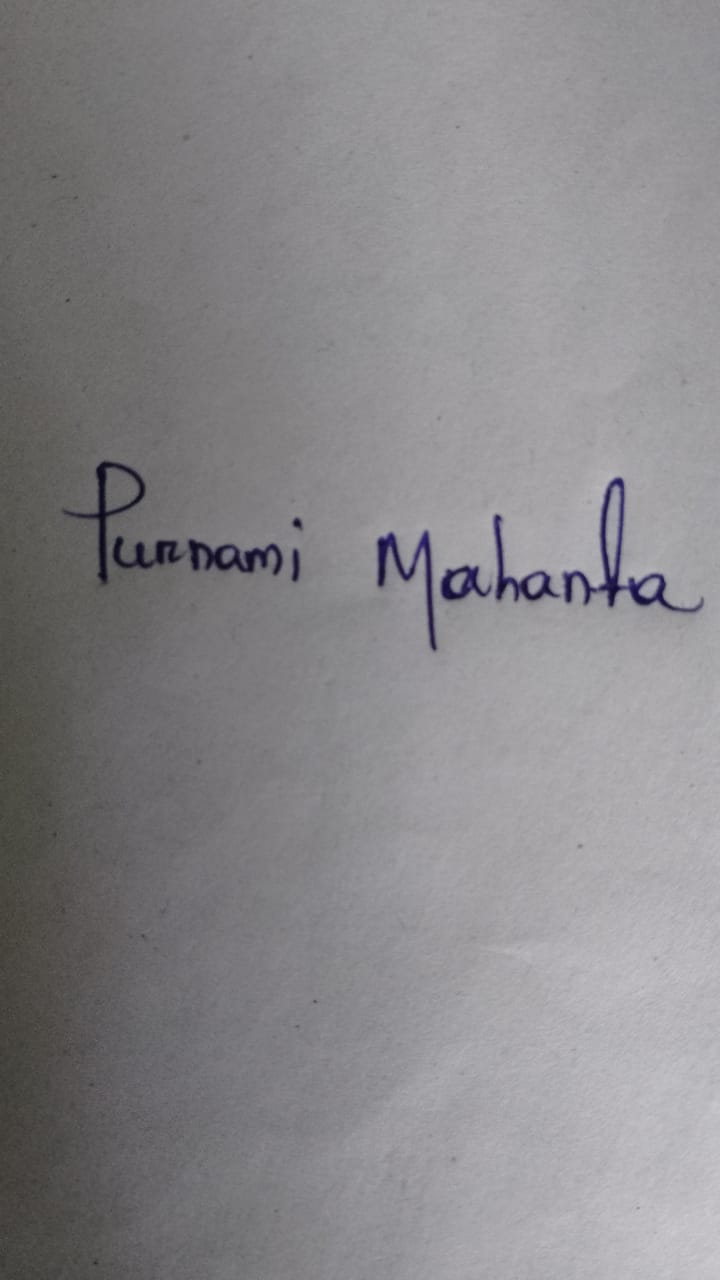 Purnami Mahanta